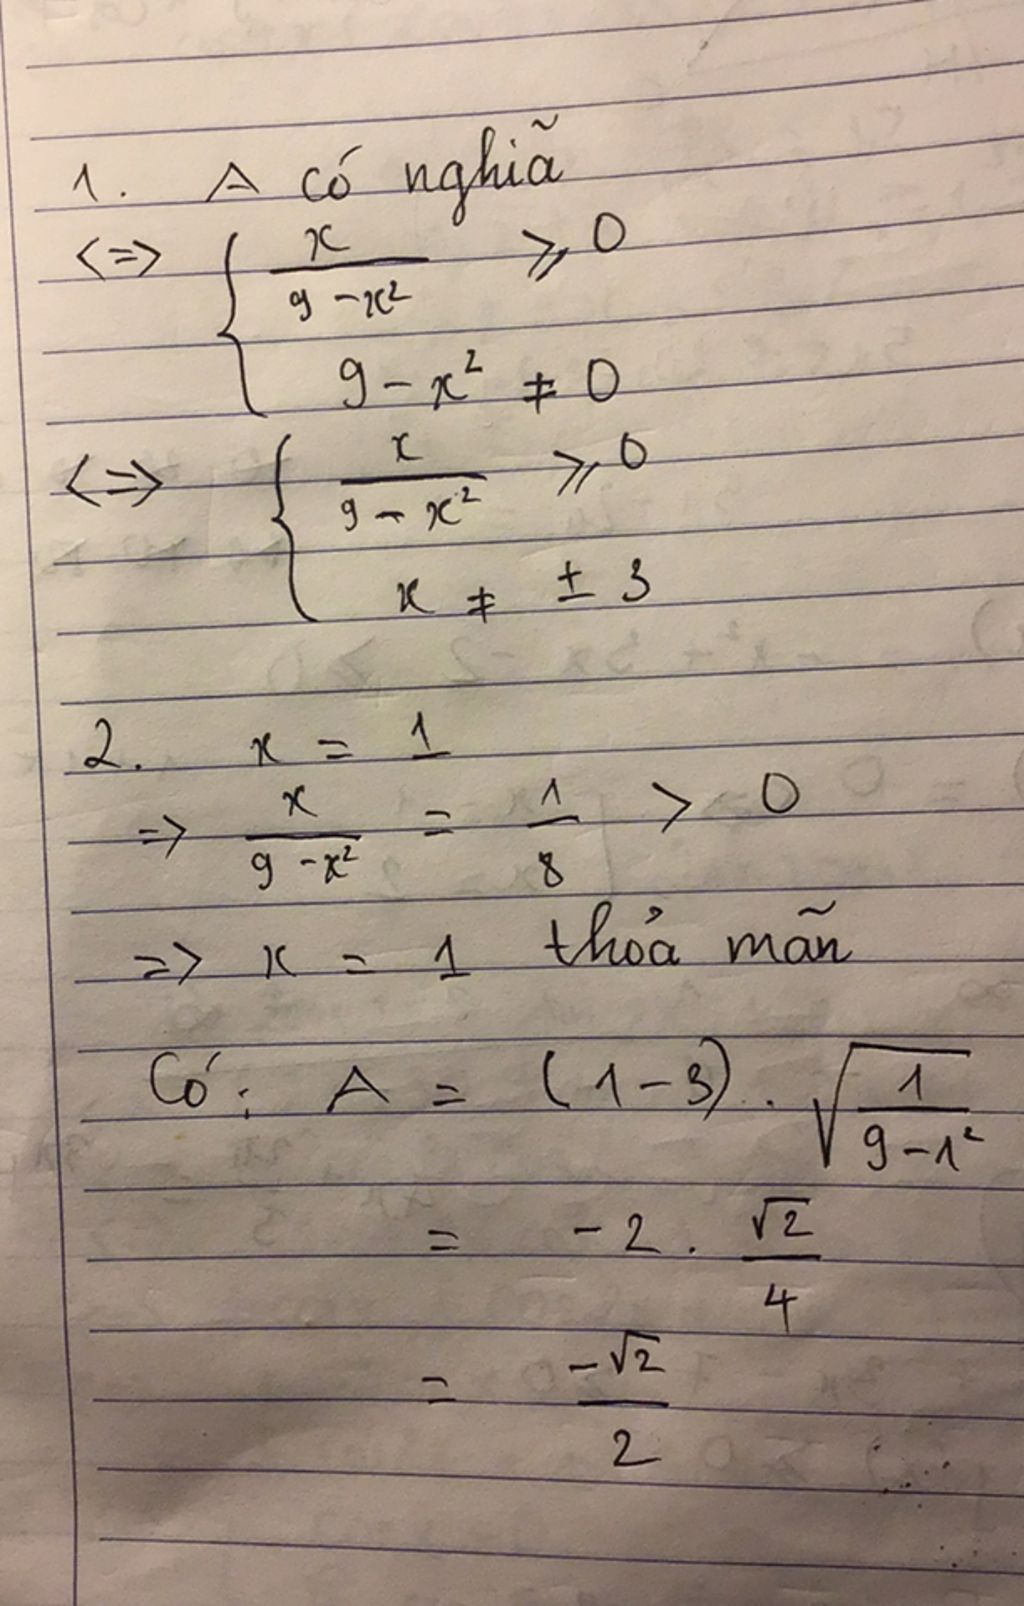 1. A có nghiã
<=> { x/(9-x²) ⩾ 0
9-x² ≠ 0
<=> { x/(9-x²) ⩾ 0
x ≠ ± 3
2. x = 1
=> x/(9-x²) = 1/8 > 0
=> x = 1 thỏa mãn
Có: A = (1-3) . √(1/(9-1²))
= -2 . √2/4
= -√2/2